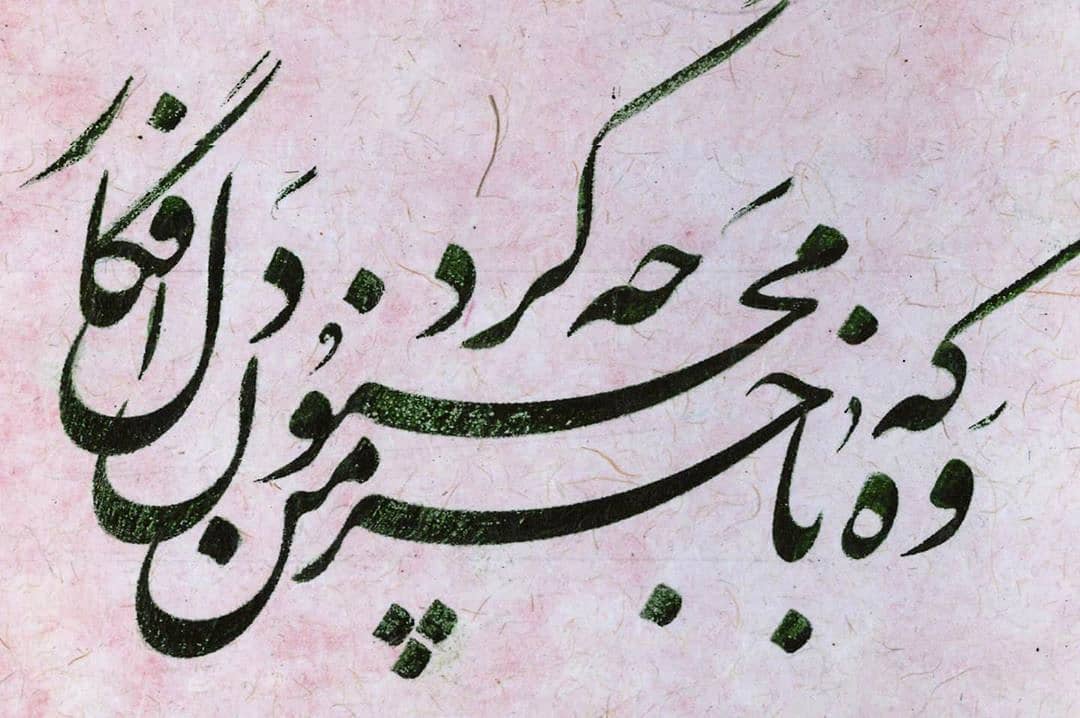 وه که با خرمن مجنون دل افگار چه کرد